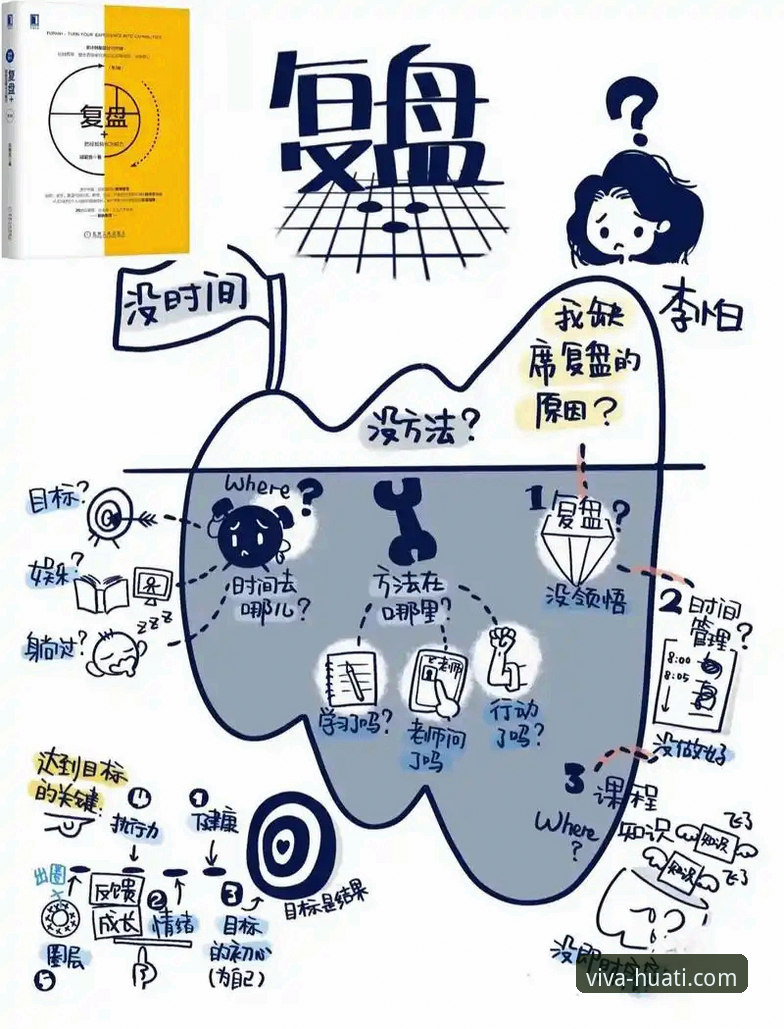 FUPAN+: TURN YOUR EXPERIENCE INTO CAPABILITIES
复盘
+
把经验转化为能力
复盘+
复盘
?
没时间
李怡白
我缺
席复盘的
原因?
没方法?
Where?
目标?
娱乐?
躺过?
zzz
时间去
哪儿?
方法在
哪里?
1 复盘?
没领悟
2 时间
管理?
8:00
8:05
没做好
学习了吗?
老师
老师问
了吗
行动
了吗?
3 课程
Where
?
知识
知识
飞了
知识
飞了
?
达到目标
的关键:
④
执行力
①
健康
出圈
反馈
成长
②
情绪
③
目标
的初心
(为自己)
圈层
⑤
目标是结果
viva-huati.com